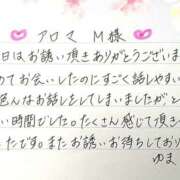 アロマ M様
日はお誘い頂きありがとうございま
めてお会いしたのにすごく話しやすい
色んなお話をしてしまいましたが、と
い時間でした。たくさん感じて頂き
たです。またお誘いお待ちしており
ゆま